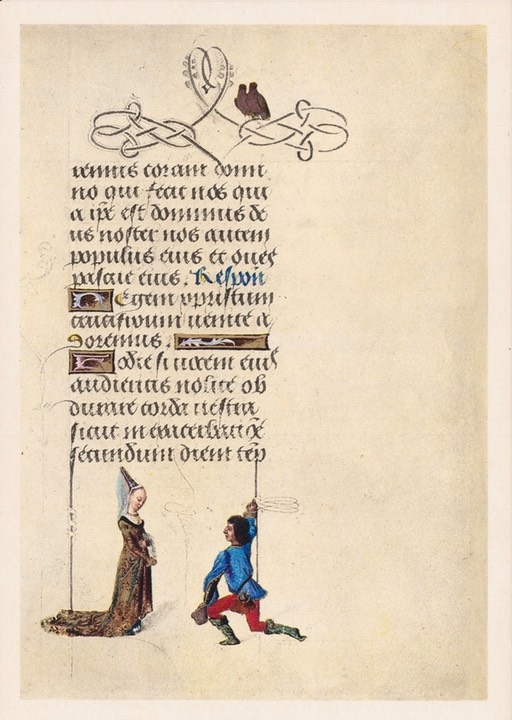 remus coram domi
no qui fecit nos qui
a ip̄e est dominus de
us noster nos autem
populus eius et oues
pascue eius. Respon
Regem xpristum
crucifixum uenite a
doremus.
Hodie si uocem eius
audieritis nolite ob
durare corda uestra
sicut in exacerbac̄
secundum diem temp